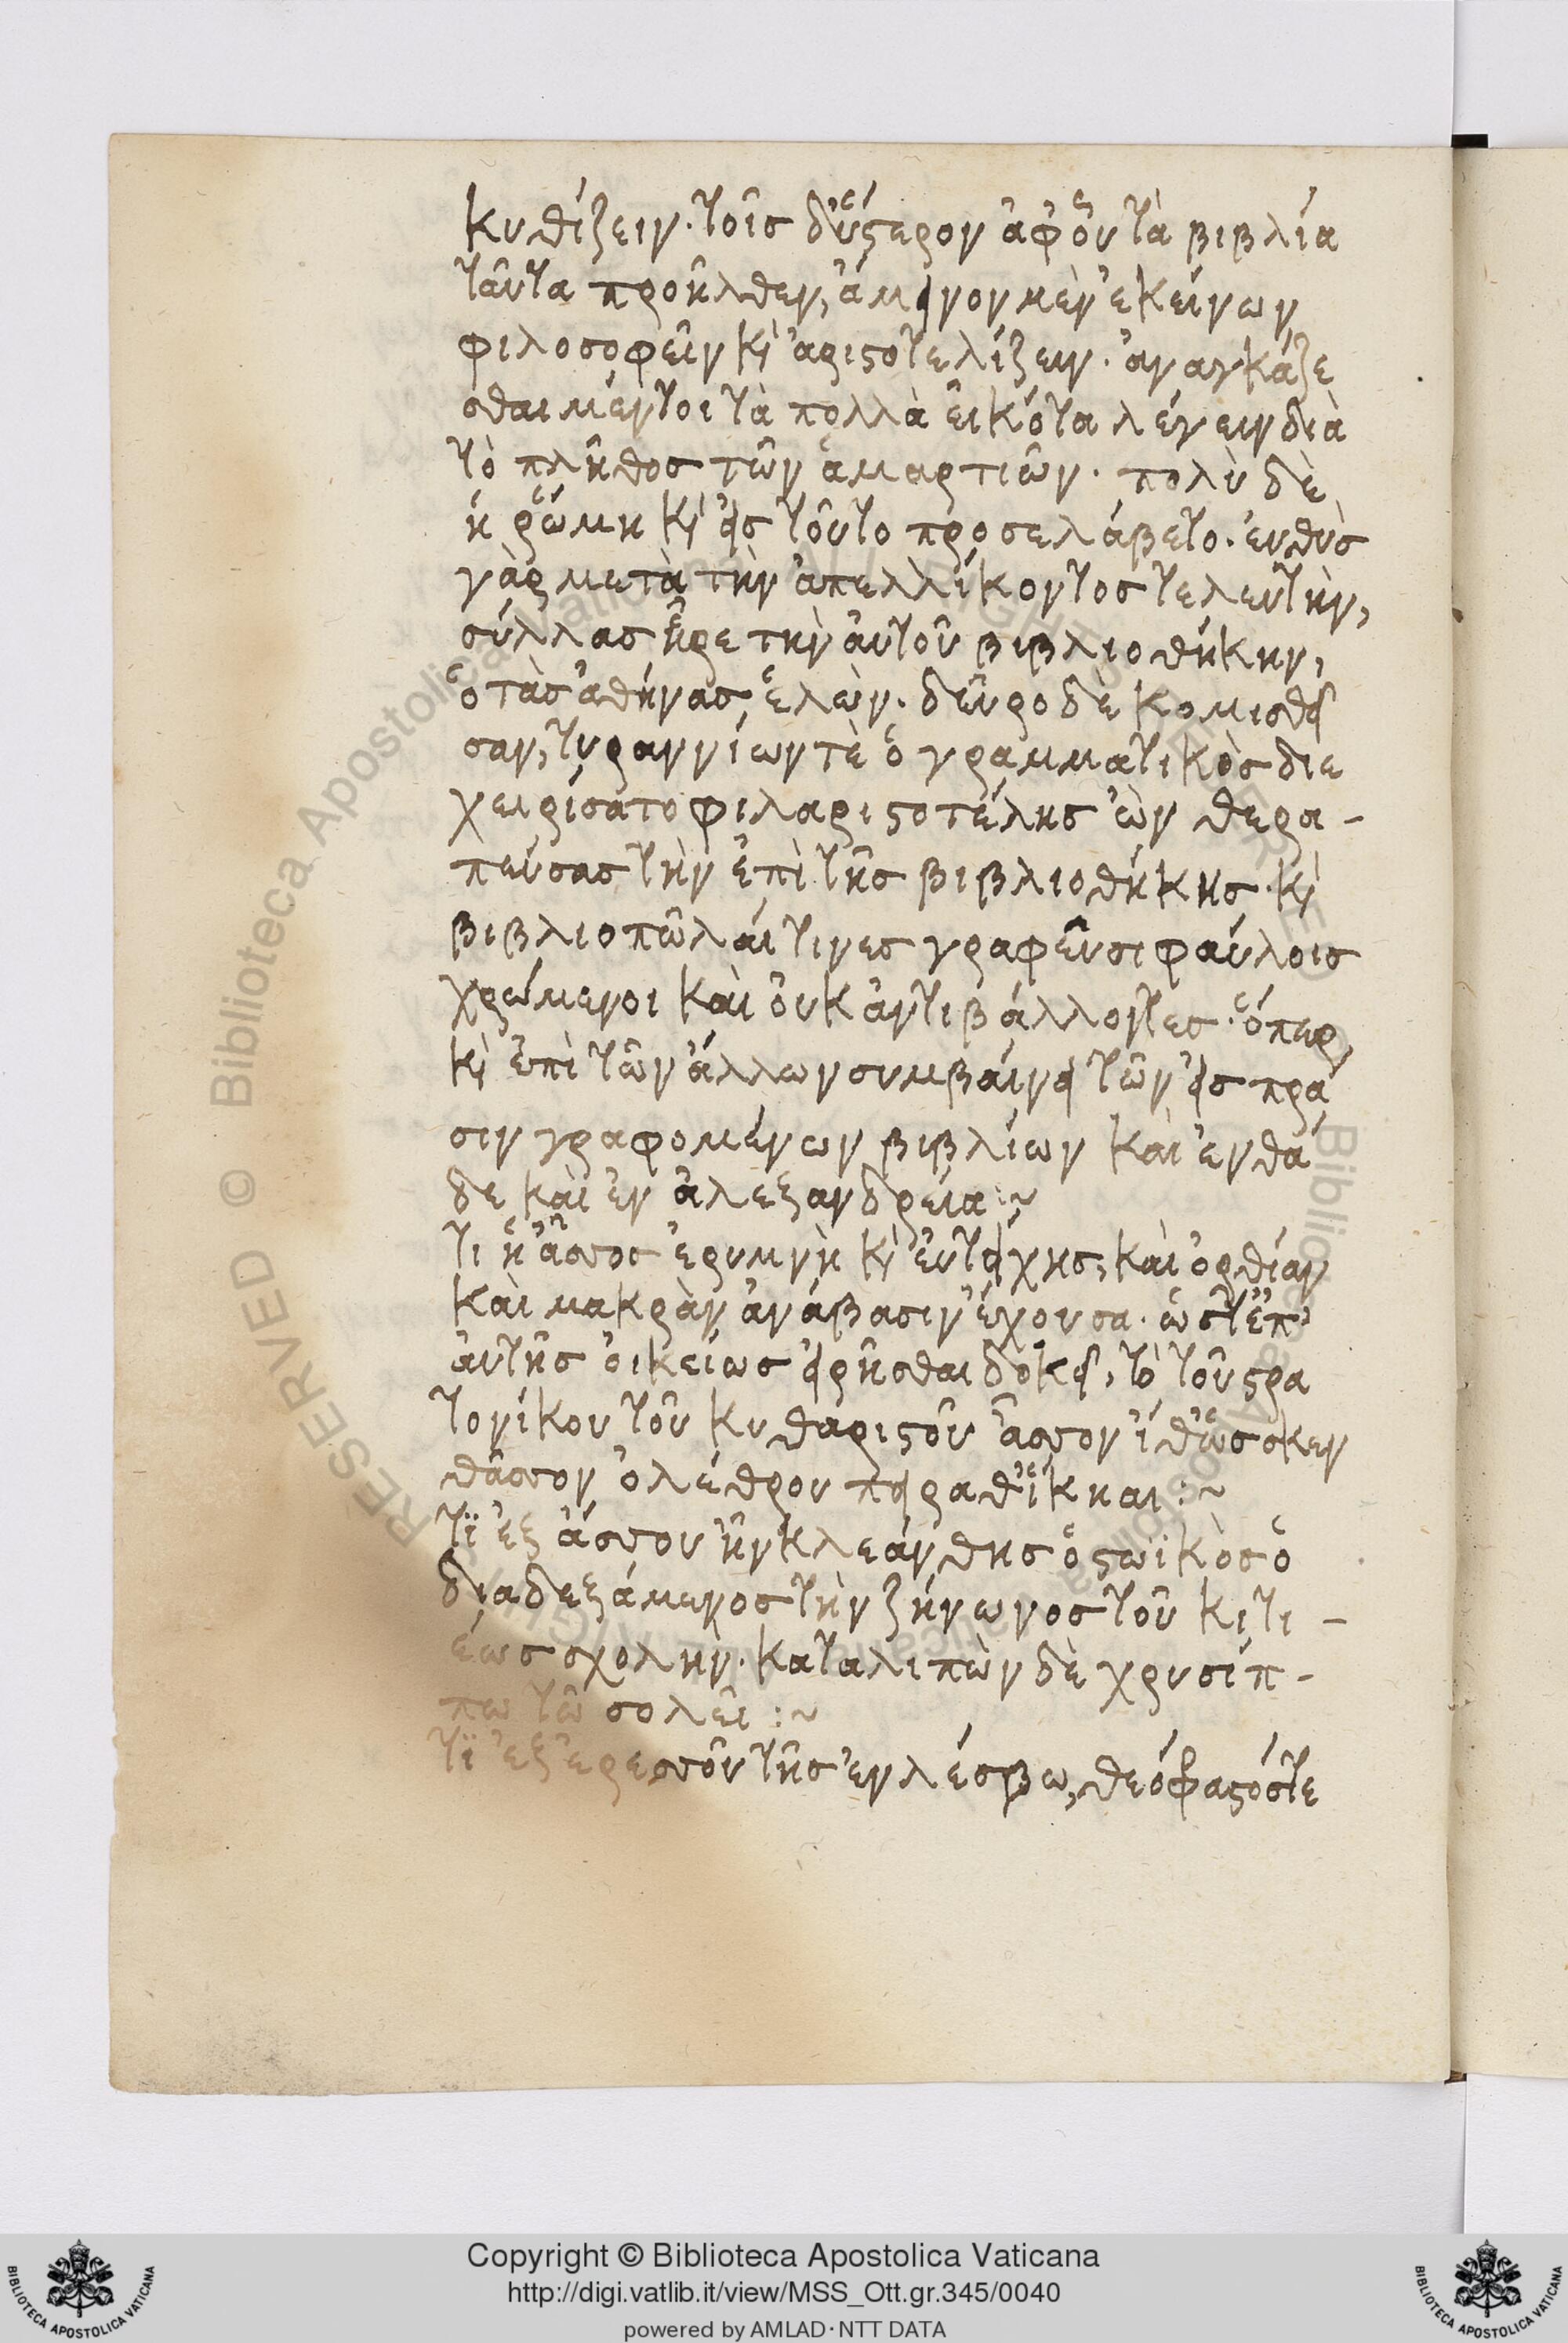 κυθίζειν· τοῖσ δ' ὕστερον ἀφ' οὗ τὰ βιβλία
ταῦτα προῆλθεν, ἄμεινον μὲν ἐκείνων
φιλοσοφεῖν κὶ ἀριστοτελίζειν· ἀναγκάζε
σθαι μέντοι τὰ πολλὰ εἰκότα λέγειν διὰ
τὸ πλῆθοσ τῶν ἁμαρτιῶν· πολὺ δὲ
ἡ ῥώμη κὶ εἰσ τοῦτο προσελάβετο· ἐυθὺσ
γὰρ μετὰ τὴν ἀπελλίκοντοσ τελευτὴν,
σύλλασ ἦρε τὴν ἀυτοῦ βιβλιοθήκην,
ὁ τὰσ ἀθήνασ ἑλὼν· δεῦρο δὲ κομισθεῖ
σαν, τυραννίων τὲ ὁ γραμματικὸσ διε
χειρίσατο φιλαριστοτέλησ ὢν θερα-
πεύσασ τὴν ἐπὶ τῆσ βιβλιοθήκησ· κὶ
βιβλιοπῶλάι τινεσ γραφεῦσι φαύλοισ
χρώμενοι καὶ ὀυκ ἀντιβάλλοντεσ· ὅπερ
κὶ ἐπὶ τῶν ἄλλων συμβάινει τῶν εἰσ πρᾶ
σιν γραφομένων βιβλίων καὶ ἐνθά
δε καὶ ἐν ἀλεξανδρεία :~
τι ἡ ἄσσοσ ἐρυμνὴ κὶ ἐυτείχησ, καὶ ὀρθίαν
καὶ μακρὰν ἀνάβασιν ἔχουσα· ὥστ' ἐπ'
ἀυτῆσ ὀικείωσ εἰρῆσθαι δοκεῖ, τὸ τοῦ στρα
τονίκου τοῦ κυθαριστοῦ ἆσσον ἴθ' ὥσ κεν
θᾶσσον ὀλέθρου πείραθ' ἵκηαι :~
τϊ ἐξ ἄσσου ἦν κλεάνθησ ὁ στωικὸσ ὁ
διαδεξάμενοσ τὴν ζήνωνοσ τοῦ κιτι-
έωσ σχολὴν· καταλιπὼν δὲ χρυσίπ-
πω τῶ σολεῖ :~
τϊ ἐξ ἐρεσσοῦ τῆσ ἐν λέσβω, θεόφραστόσ τε
Copyright © Biblioteca Apostolica Vaticana
http://digi.vatlib.it/view/MSS_Ott.gr.345/0040
powered by AMLAD·NTT DATA